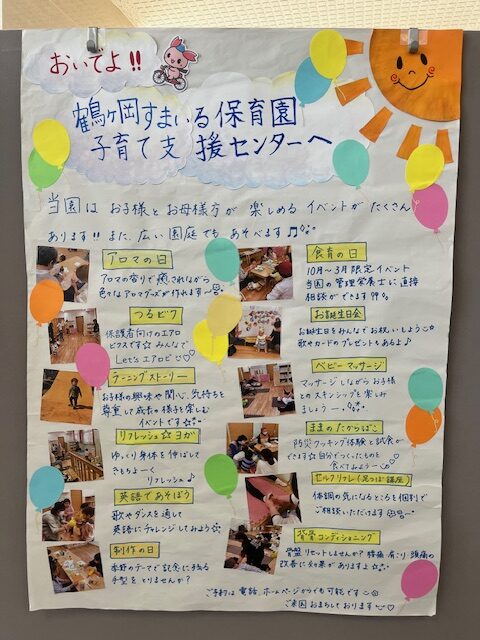 おいでよ!!
鶴ヶ岡すまいる保育園
子育て支援センターへ
当園はお子様とお母様方が楽しめるイベントがたくさん
あります!!また、広い園庭でもあそべます♫
アロマの日
アロマの香りで癒されながら
色々なアロマグッズが作れます〜
つるビク
保護者向けのエアロ
ビクスです☆みんなで
Let'sエアロビ♡
ラーニングストーリー
お子様の興味や関心、気持ちを
尊重して成長の様子を楽しむ
イベントです☆
リフレッシュ☆ヨガ
ゆっくり身体を伸ばして
きもちよーく
リフレッシュ♪
英語であそぼう
歌やダンスを通して
英語にチャレンジしてみよう☆
制作の日
季節のテーマで記念に残る
手型をとりませんか?
食育の日
10月〜3月限定イベント
当園の管理栄養士に直接
相談ができます
お誕生日会
お誕生日をみんなでお祝いしよう
歌やカードのプレゼントもあるよ♪
ベビーマッサージ
マッサージしながらお子様
とのスキンシップを楽しみ
ましょうー
ままのたからばこ
防災クッキング体験と試食が
できます☆自分でつくったものを
食べてみよう〜
セルフリフレ(足つぼ講座)
体調の気になるところを個別で
ご相談いただけます
骨盤コンディショニング
骨盤リセットしませんか?腰痛、肩こり、頭痛の
改善に効果がありますよ☆
ご予約は電話、ホームページからでも可能です☺
ご来園お待ちしております♡